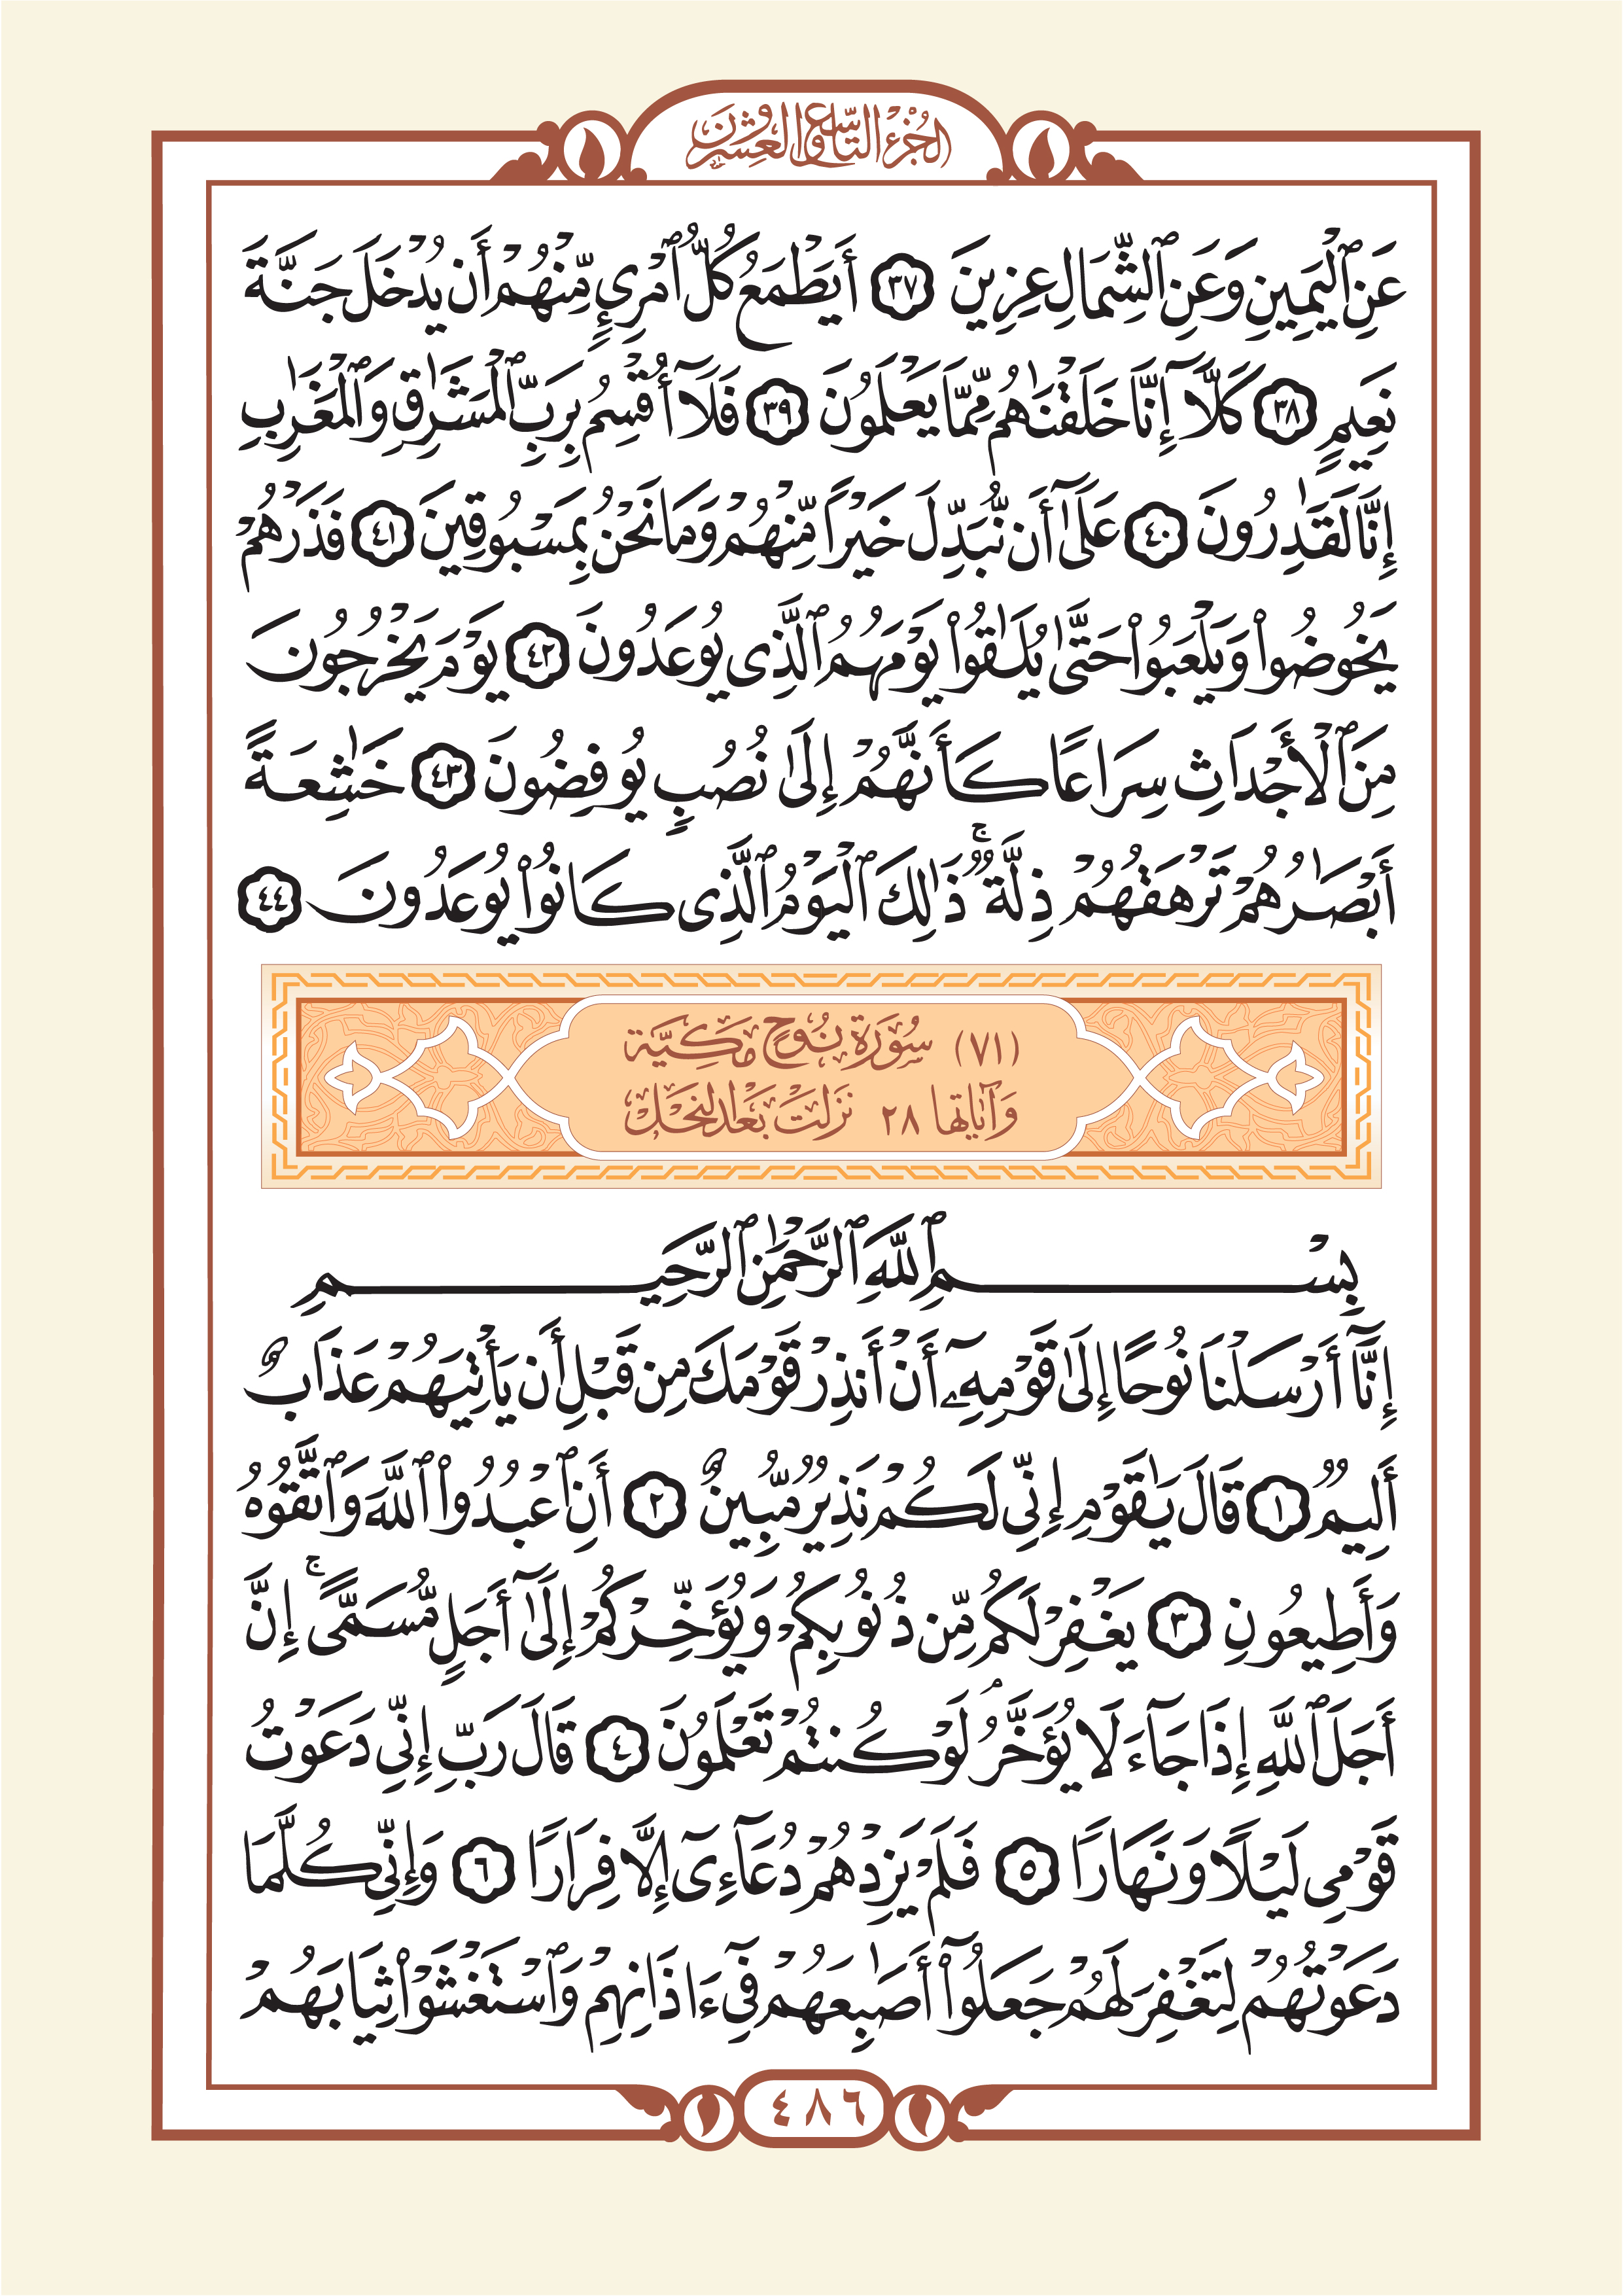 الجزء التاسع والعشرون
عَنِ ٱلْيَمِينِ وَعَنِ ٱلشِّمَالِ عِزِينَ ٣٧ أَيَطْمَعُ كُلُّ ٱمْرِئٍ مِّنْهُمْ أَن يُدْخَلَ جَنَّةَ
نَعِيمٍ ٣٨ كَلَّآ إِنَّا خَلَقْنَٰهُم مِّمَّا يَعْلَمُونَ ٣٩ فَلَآ أُقْسِمُ بِرَبِّ ٱلْمَشَٰرِقِ وَٱلْمَغَٰرِبِ
إِنَّا لَقَٰدِرُونَ ٤٠ عَلَىٰٓ أَن نُّبَدِّلَ خَيْرًا مِّنْهُمْ وَمَا نَحْنُ بِمَسْبُوقِينَ ٤١ فَذَرْهُمْ
يَخُوضُوا۟ وَيَلْعَبُوا۟ حَتَّىٰ يُلَٰقُوا۟ يَوْمَهُمُ ٱلَّذِى يُوعَدُونَ ٤٢ يَوْمَ يَخْرُجُونَ
مِنَ ٱلْأَجْدَاثِ سِرَاعًا كَأَنَّهُمْ إِلَىٰ نُصُبٍ يُوفِضُونَ ٤٣ خَٰشِعَةً
أَبْصَٰرُهُمْ تَرْهَقُهُمْ ذِلَّةٌ ۚ ذَٰلِكَ ٱلْيَوْمُ ٱلَّذِى كَانُوا۟ يُوعَدُونَ ٤٤
(٧١) سُورَةُ نُوحٍ مَكِيَّة
وَآيَاتُهَا ٢٨ نَزَلَتْ بَعْدَ النَّحْل
بِسْمِ ٱللَّهِ ٱلرَّحْمَٰنِ ٱلرَّحِيمِ
إِنَّآ أَرْسَلْنَا نُوحًا إِلَىٰ قَوْمِهِۦٓ أَنْ أَنذِرْ قَوْمَكَ مِن قَبْلِ أَن يَأْتِيَهُمْ عَذَابٌ
أَلِيمٌ ١ قَالَ يَٰقَوْمِ إِنِّى لَكُمْ نَذِيرٌ مُّبِينٌ ٢ أَنِ ٱعْبُدُوا۟ ٱللَّهَ وَٱتَّقُوهُ
وَأَطِيعُونِ ٣ يَغْفِرْ لَكُم مِّن ذُنُوبِكُمْ وَيُؤَخِّرْكُمْ إِلَىٰٓ أَجَلٍ مُّسَمًّى ۚ إِنَّ
أَجَلَ ٱللَّهِ إِذَا جَآءَ لَا يُؤَخَّرُ ۖ لَوْ كُنتُمْ تَعْلَمُونَ ٤ قَالَ رَبِّ إِنِّى دَعَوْتُ
قَوْمِى لَيْلًا وَنَهَارًا ٥ فَلَمْ يَزِدْهُمْ دُعَآءِىٓ إِلَّا فِرَارًا ٦ وَإِنِّى كُلَّمَا
دَعَوْتُهُمْ لِتَغْفِرَ لَهُمْ جَعَلُوٓا۟ أَصَٰبِعَهُمْ فِىٓ ءَاذَانِهِمْ وَٱسْتَغْشَوْا۟ ثِيَابَهُمْ
٤٨٦